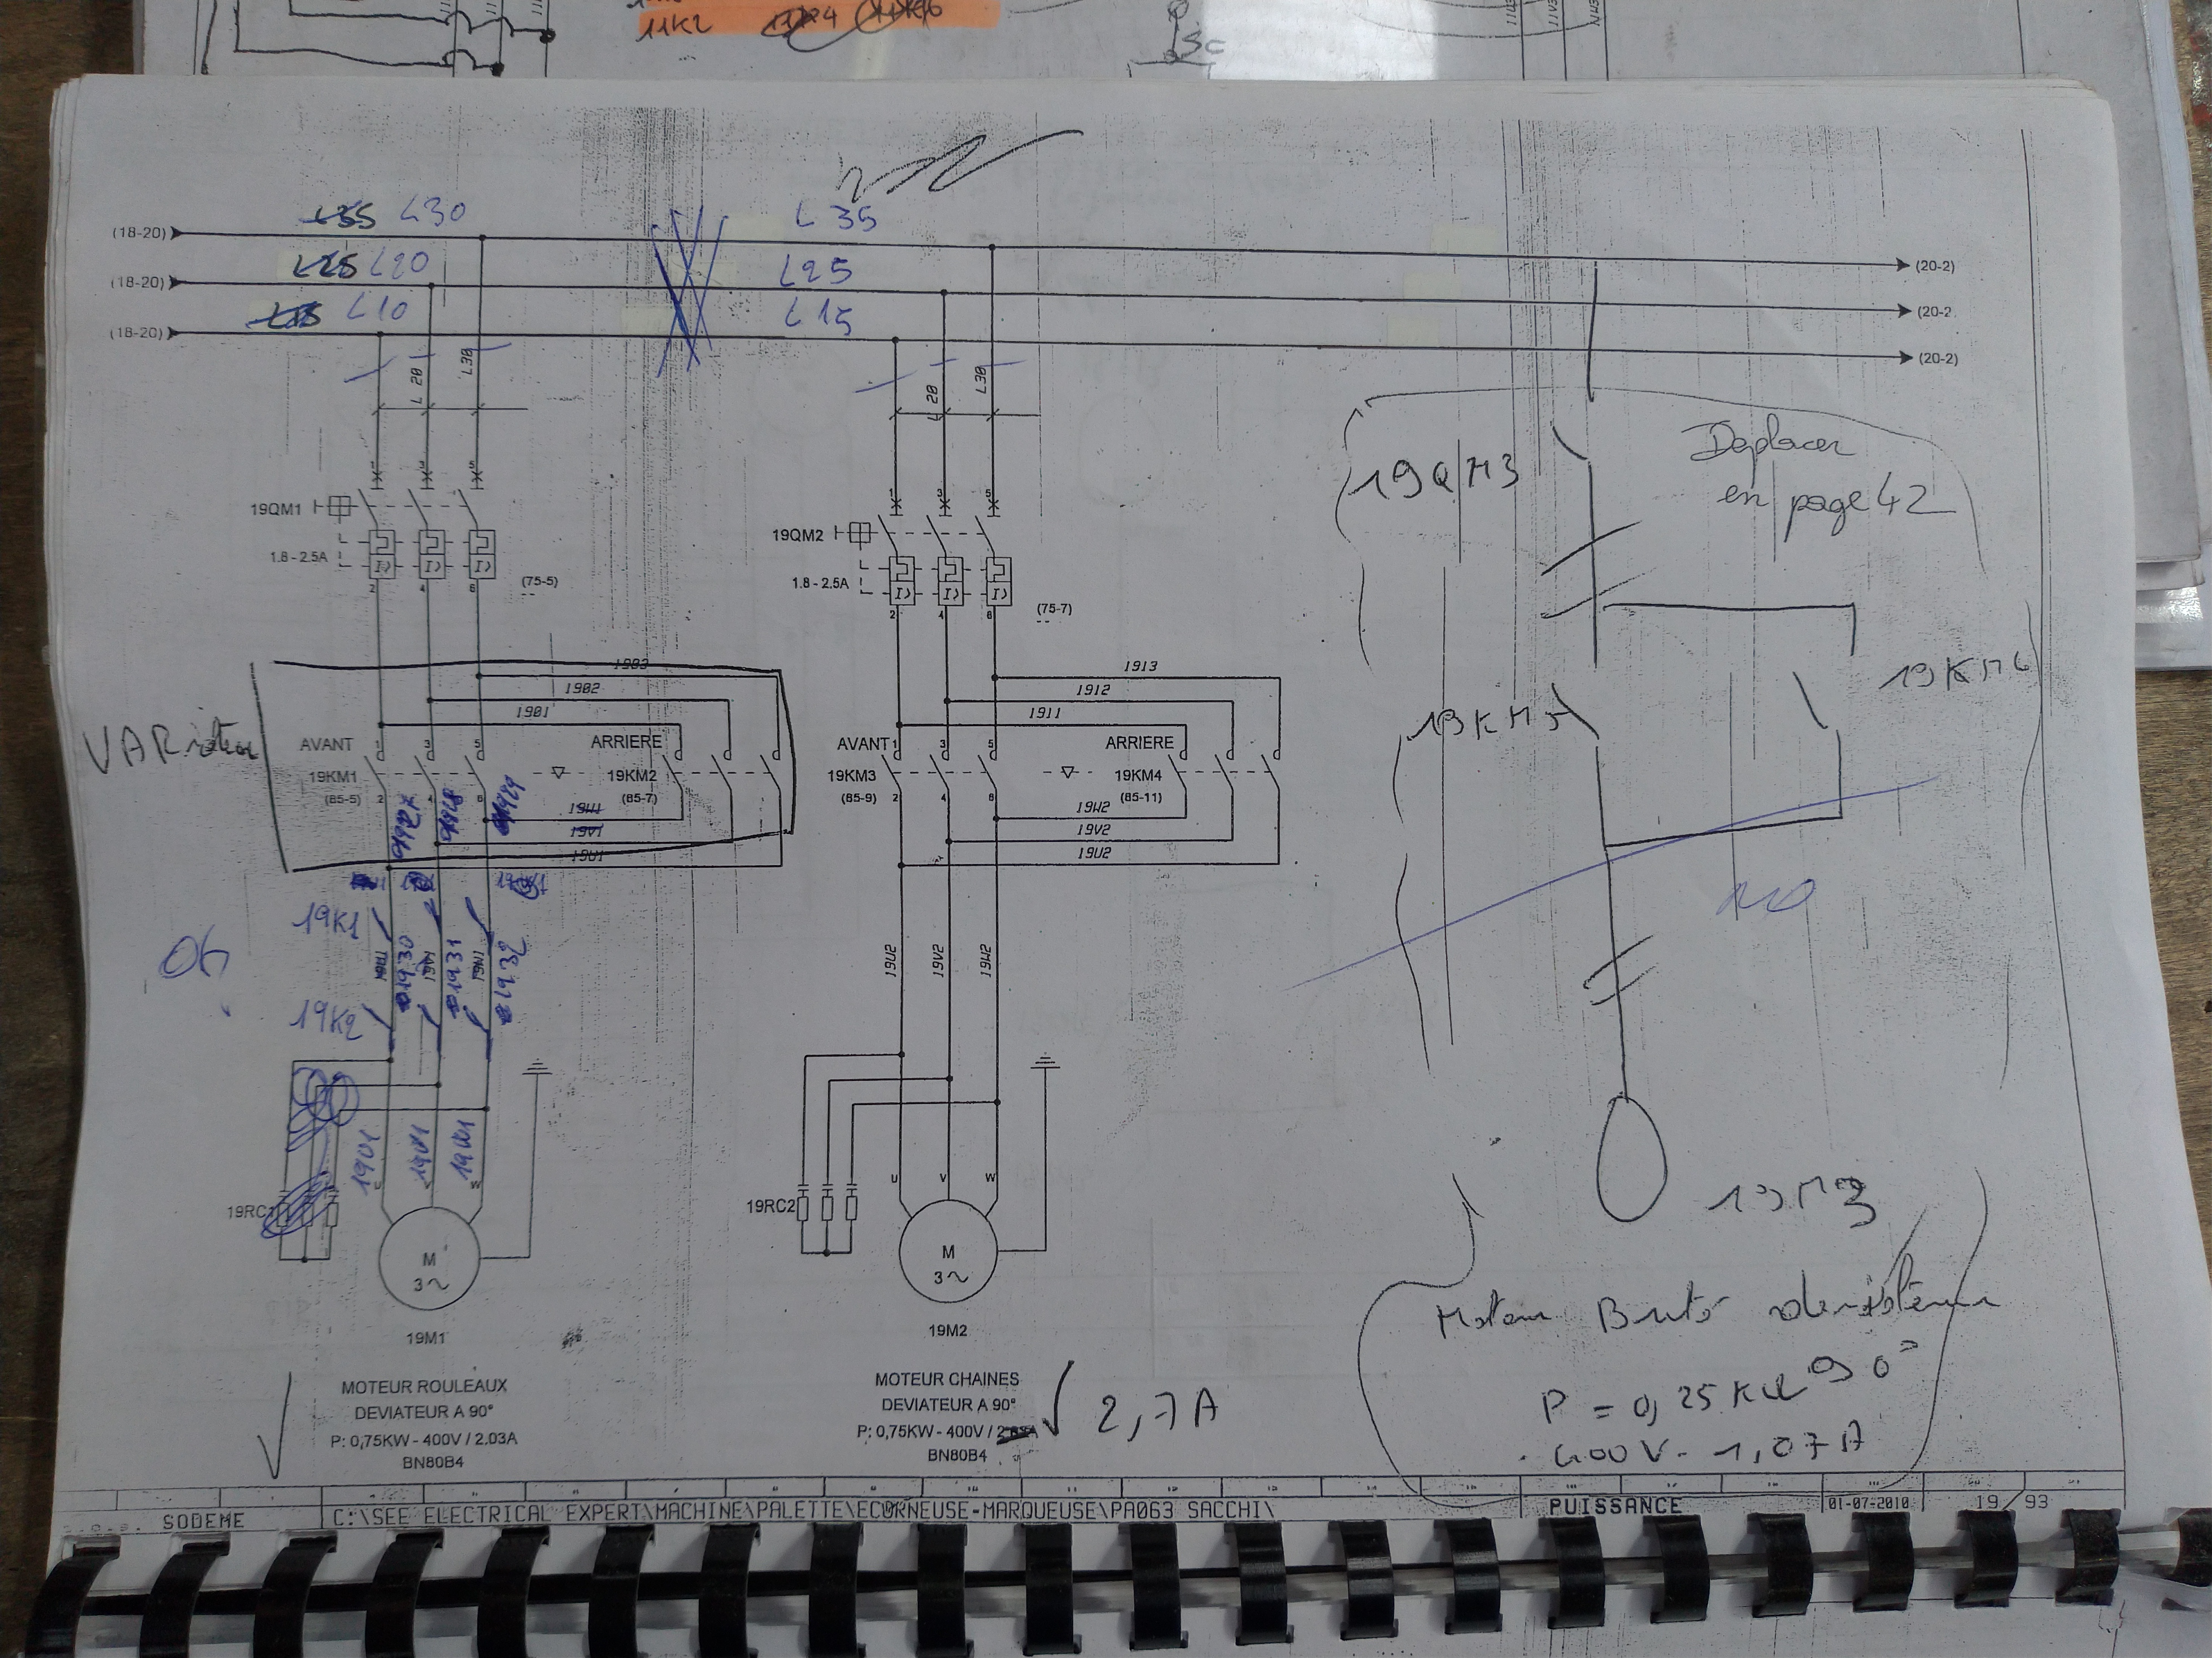 11K2
L30
L35
(18-20)
(20-2)
L20
L25
(18-20)
(20-2
L10
L15
(18-20)
(20-2)
L 20
L30
L 20
L30
19QM1
1.8 - 2.5A
2
4
6
(75-5)
19QM2
1.8 - 2.5A
1
3
5
2
4
6
(75-7)
19QM3
Deplacer
en page 42
1903
1902
1901
AVANT
1
3
5
ARRIERE
19KM1
(85-5)
2
4
6
19KM2
(85-7)
19W1
19V1
19U1
1913
1912
1911
AVANT
1
3
5
ARRIERE
19KM3
(85-9)
2
4
6
19KM4
(85-11)
19W2
19V2
19U2
19K1
1930
1931
1932
19K2
19U2
19V2
19W2
19RC1
U
V
W
M
3~
19M1
MOTEUR ROULEAUX
DEVIATEUR A 90°
P: 0,75KW - 400V / 2.03A
BN80B4
19RC2
U
V
W
M
3~
19M2
MOTEUR CHAINES
DEVIATEUR A 90°
P: 0,75KW - 400V /
2,7A
BN80B4
19M3
Moteur
90°
P = 0,25 KW
400V - 1,07A
SODEME
C:\SEE ELECTRICAL EXPERT\MACHINE\PALETTE\ECORNEUSE-MARQUEUSE\PA063 SACCHI\
PUISSANCE
01-07-2010
19 / 93